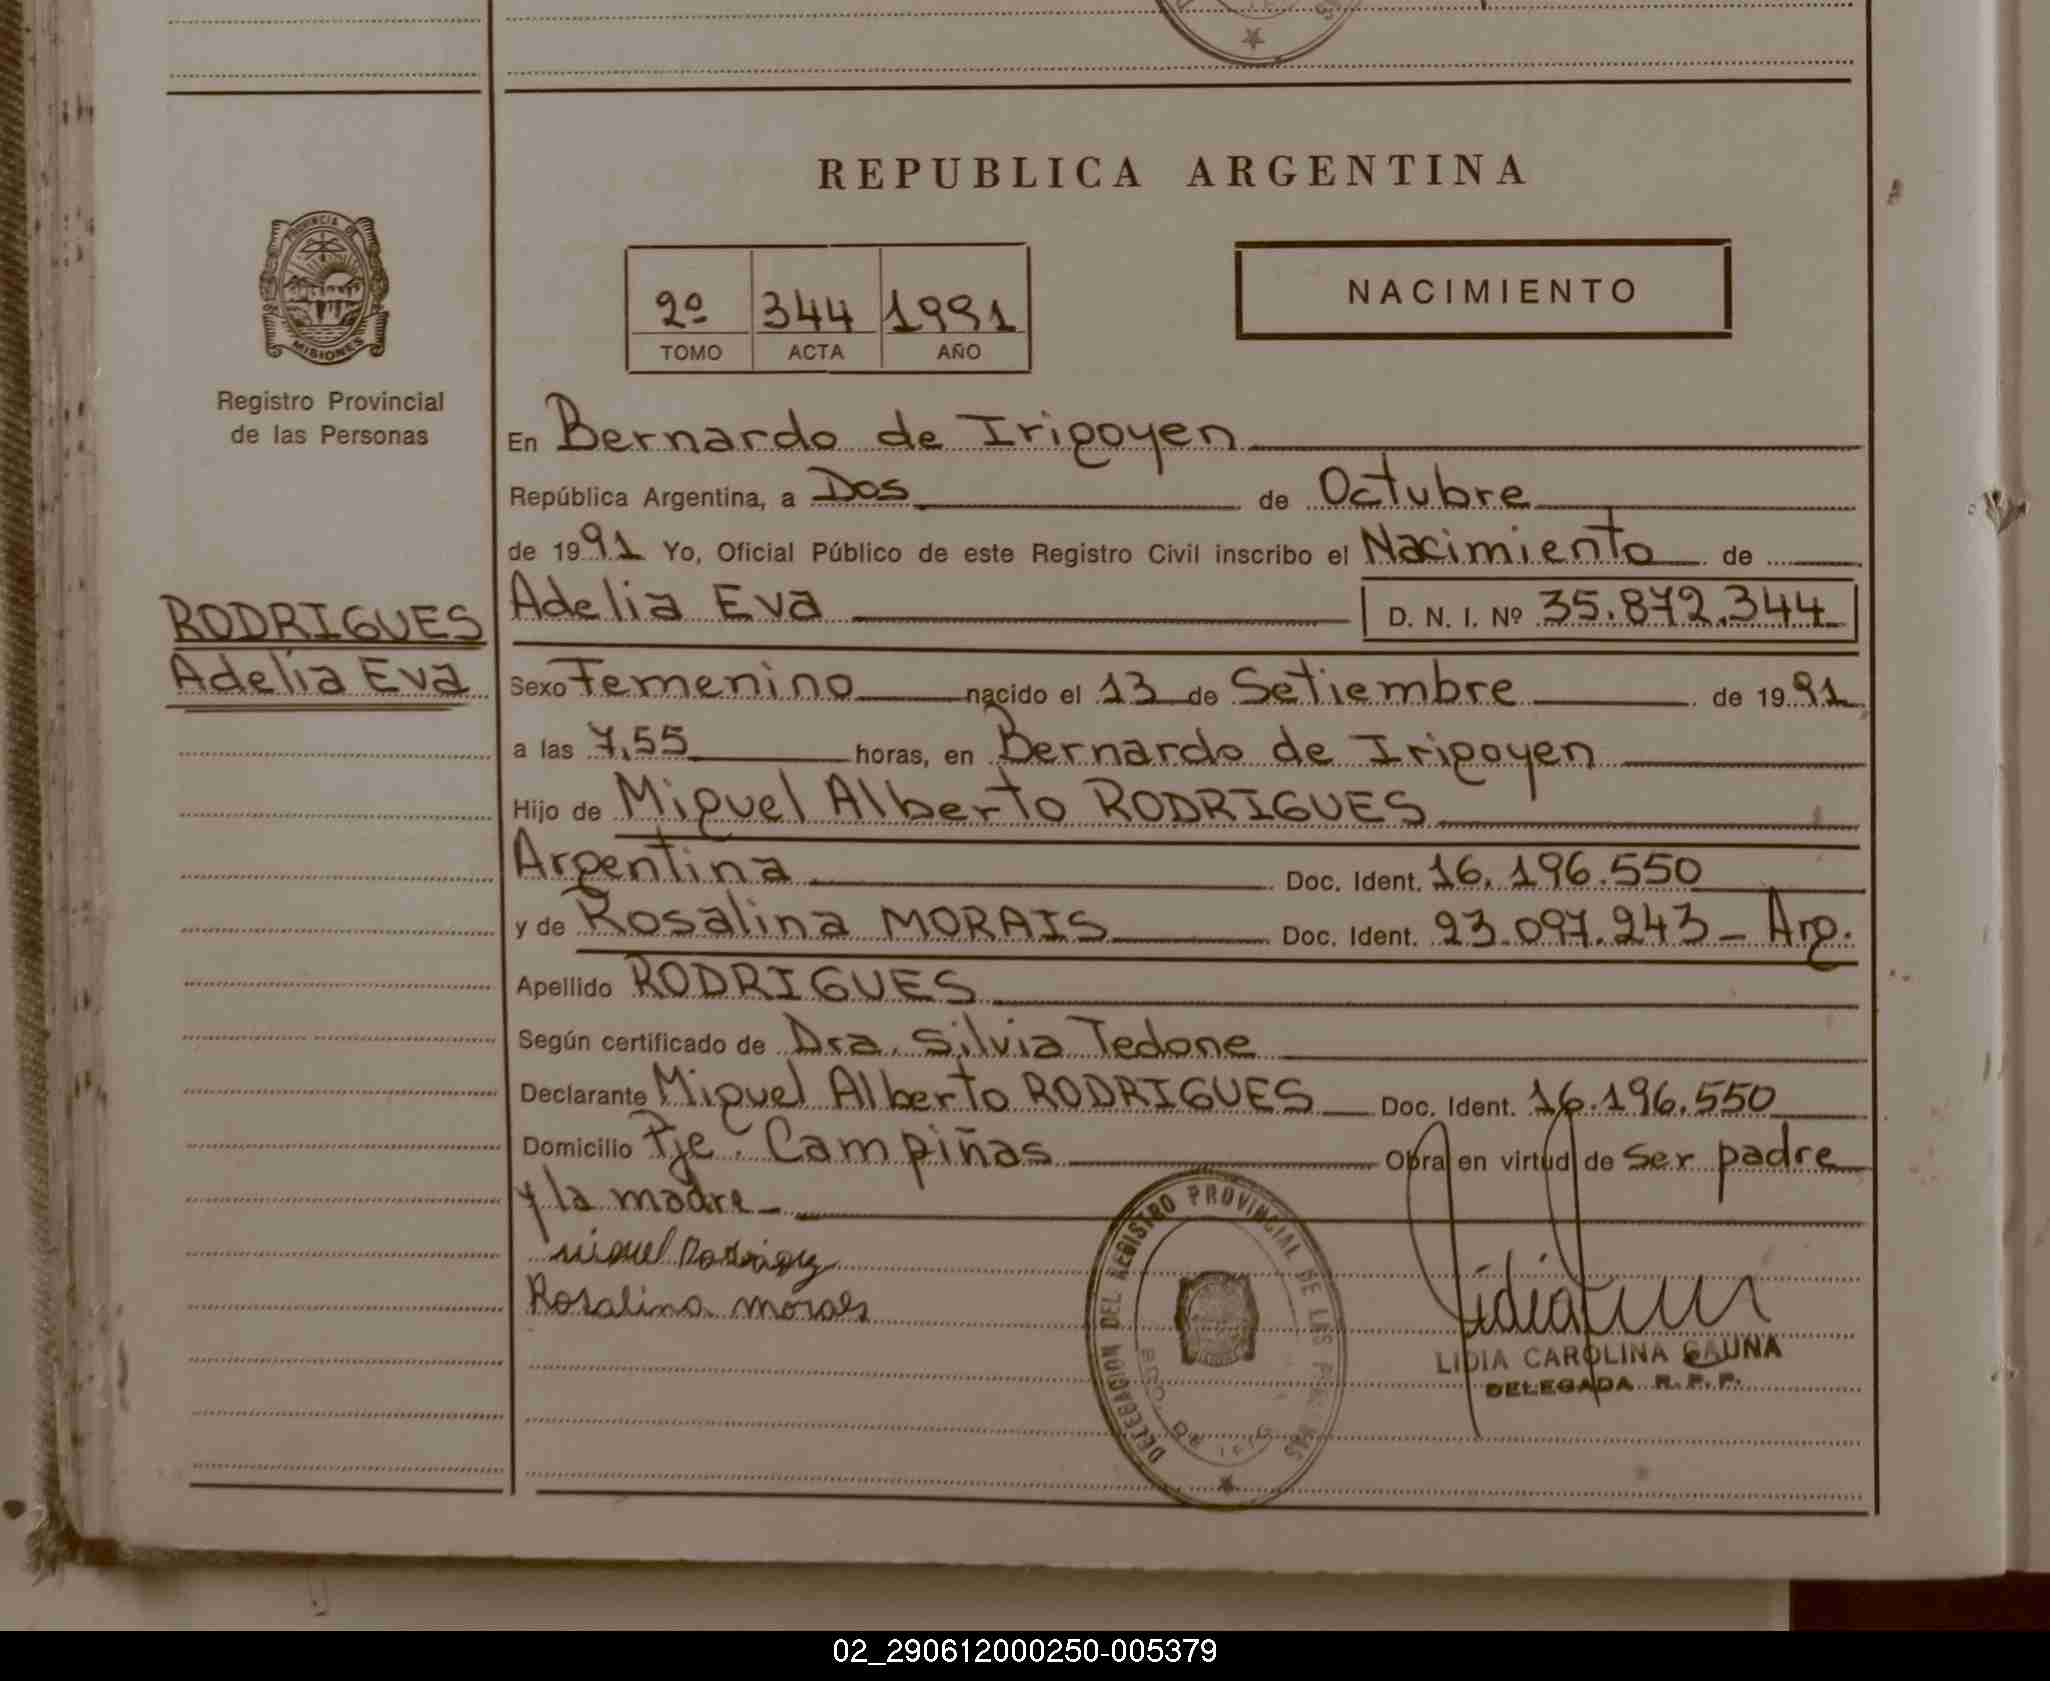 REPUBLICA ARGENTINA
PROVINCIA DE
MISIONES
Registro Provincial
de las Personas
2º 344 1991
TOMO ACTA AÑO
NACIMIENTO
En Bernardo de Irigoyen
República Argentina, a Dos de Octubre
de 1991 Yo, Oficial Público de este Registro Civil inscribo el Nacimiento de
RODRIGUES
Adelia Eva
Adelia Eva D. N. I. Nº 35.872.344
Sexo Femenino nacido el 13 de Setiembre de 1991
a las 7,55 horas, en Bernardo de Irigoyen
Hijo de Miguel Alberto RODRIGUES
Argentina Doc. Ident. 16.196.550
y de Rosalina MORAIS Doc. Ident. 23.097.243 - Arg.
Apellido RODRIGUES
Según certificado de Dra. Silvia Tedone
Declarante Miguel Alberto RODRIGUES Doc. Ident. 16.196.550
Domicilio Pje. Campiñas Obra en virtud de ser padre
y la madre -
Miguel
Rosalina moraes
DELEGACION DEL REGISTRO PROVINCIAL DE LAS
LIDIA CAROLINA GAUNA
DELEGADA R. P. P.
02_290612000250-005379